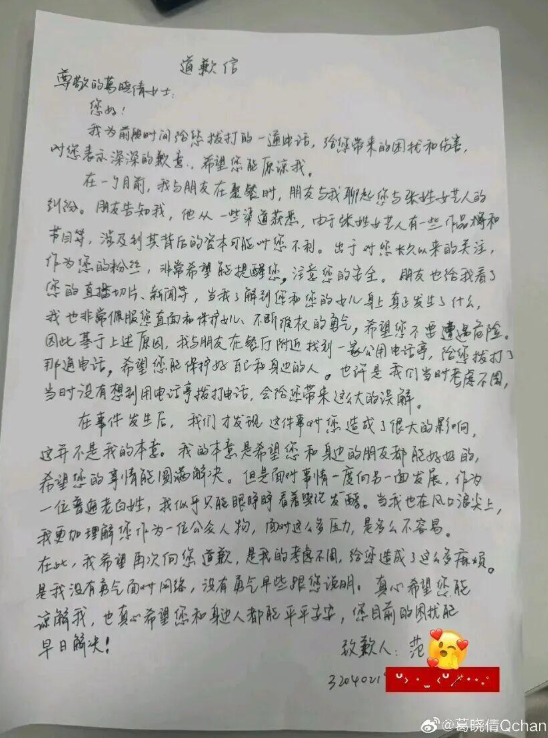 道歉信
尊敬的葛晓倩女士:
您好!
我为前段时间给您拨打的一通电话,给您带来的困扰和伤害,
对您表示深深的歉意,希望您能原谅我。
在一个月前,我与朋友在聚餐时,朋友与我聊起您与张姓女艺人的
纠纷。朋友告知我,他从一些渠道获悉,由于张姓女艺人有一些作品播和
节目等,涉及到其背后的资本可能对您不利。出于对您长久以来的关注,
作为您的粉丝,非常希望能提醒您,注意您的安全。朋友也给我看了
您的直播切片、新闻等,当我了解到您和您的女儿身上真正发生了什么,
我也非常佩服您直面和保护女儿、不断维权的勇气,希望您不要遭遇危险。
因此基于上述原因,我与朋友在餐厅附近找到一家公用电话亭,给您拨打了
那通电话,希望您能保护好自己和身边的人。也许是我们当时考虑不周,
当时没有想到用电话亭拨打电话,会给您带来这么大的误解。
在事件发生后,我们才发现这件事对您造成了很大的影响,
这并不是我的本意。我的本意是希望您和身边的朋友都能好好的,
希望您的事情能圆满解决。但是面对事情一度向另一面发展,作为
一位普通老百姓,我似乎只能眼睁睁看着舆论发酵。当我也在风口浪尖上,
我更加理解您作为一位公众人物,面对这么多压力,是多么不容易。
在此,我希望再次向您道歉,是我的考虑不周,给您造成了这么多麻烦。
是我没有勇气面对网络,没有勇气早些跟您说明。真心希望您能
谅解我,也真心希望您和身边人都能平平安安,您目前的困扰能
早日解决!
致歉人:范
3204021
@葛晓倩Qchan